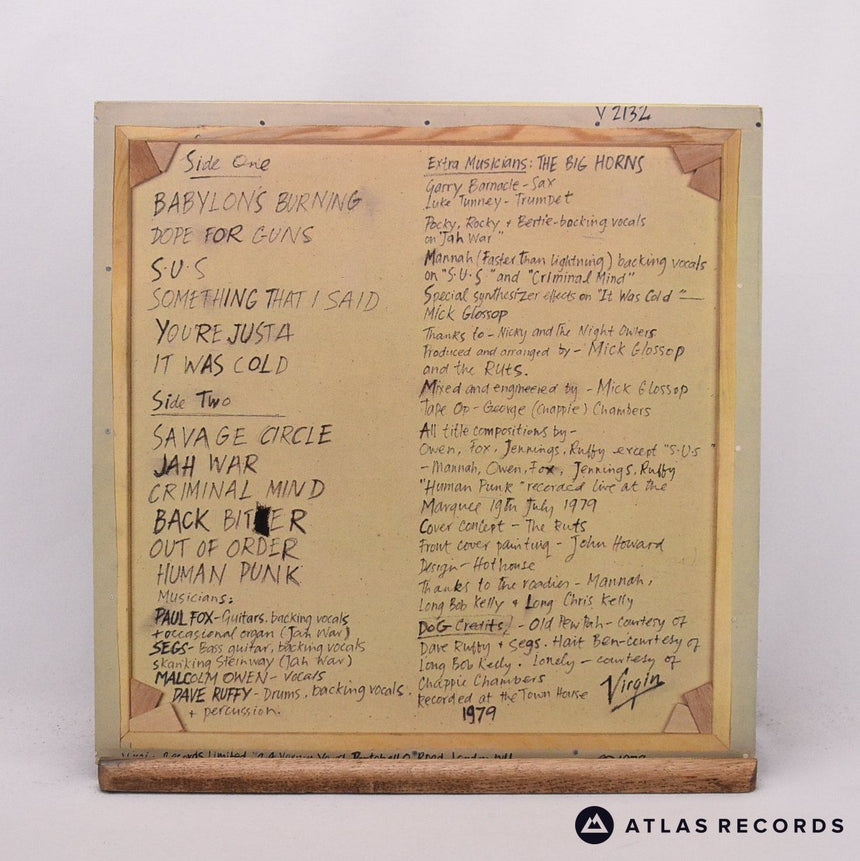 V 2132
Side One
BABYLON'S BURNING
DOPE FOR GUNS
S·U·S
SOMETHING THAT I SAID
YOU'RE JUST A
IT WAS COLD
Side Two
SAVAGE CIRCLE
JAH WAR
CRIMINAL MIND
BACK BITER
OUT OF ORDER
HUMAN PUNK
Musicians:
PAUL FOX-Guitars, backing vocals
+ occasional organ (Jah War)
SEGS- Bass guitar, backing vocals
skanking Steinway (Jah War)
MALCOLM OWEN- Vocals
DAVE RUFFY- Drums, backing vocals.
+ percussion.
Extra Musicians: THE BIG HORNS
Garry Barnacle- Sax
Luke Tunney- Trumpet
Pocky, Rocky + Bertie-backing vocals
on "Jah War"
Mannah (Faster than lightning) backing vocals
on "S·U·S" and "Criminal Mind"
Special synthesizer effects on "It Was Cold"-
Mick Glossop
Thanks to- Nicky and the Night Owlers
Produced and arranged by- Mick Glossop
and the Ruts.
Mixed and engineered by - Mick Glossop
Tape Op- George (Chappie) Chambers
All title compositions by-
Owen, Fox, Jennings, Ruffy except "S·U·S"
- Mannah, Owen, Fox, Jennings, Ruffy
"Human Punk" recorded live at the
Marquee 19th July 1979
Cover concept - The Ruts
Front cover painting- John Howard
Design- Hothouse
Thanks to the roadies- Mannah,
Long Bob Kelly + Long Chris Kelly
DOG Credits/ - Old Pew Pah- courtesy of
Dave Ruffy + Segs. Hait Ben-courtesy of
Long Bob Kelly. Lonely- courtesy of
Chappie Chambers
Recorded at the Town House
1979
Virgin
Records Limited Road, London
ATLAS RECORDS